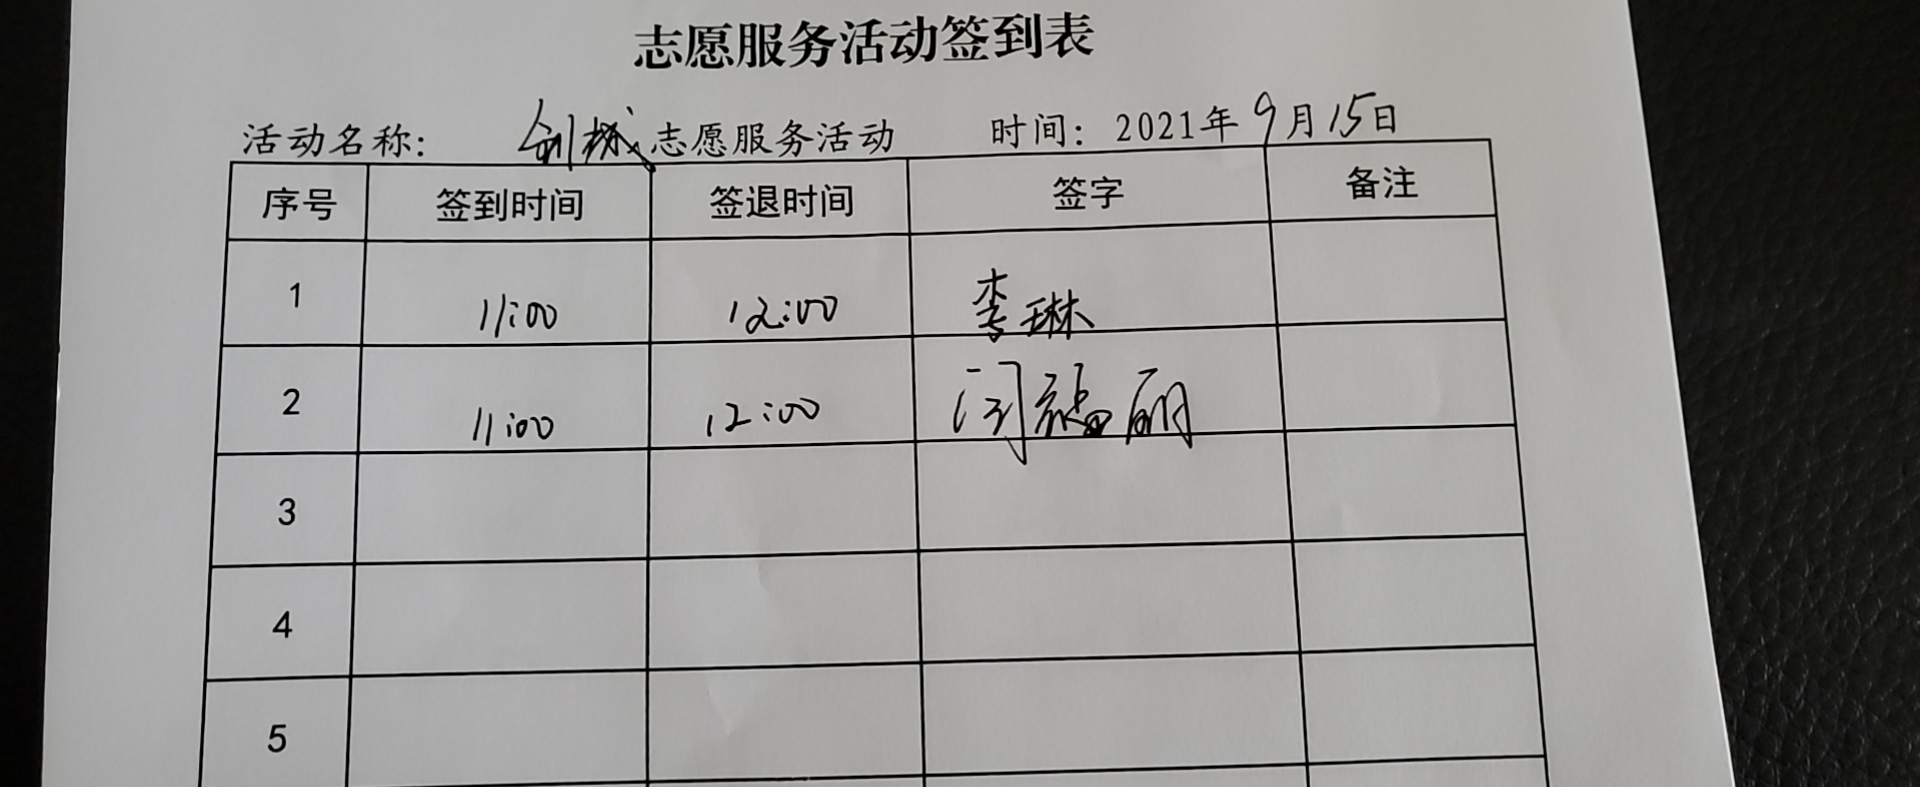 志愿服务活动签到表
活动名称: 创城志愿服务活动 时间: 2021年9月15日
序号 签到时间 签退时间 签字 备注
1 11:00 12:00 李琳
2 11:00 12:00 丽
3
4
5